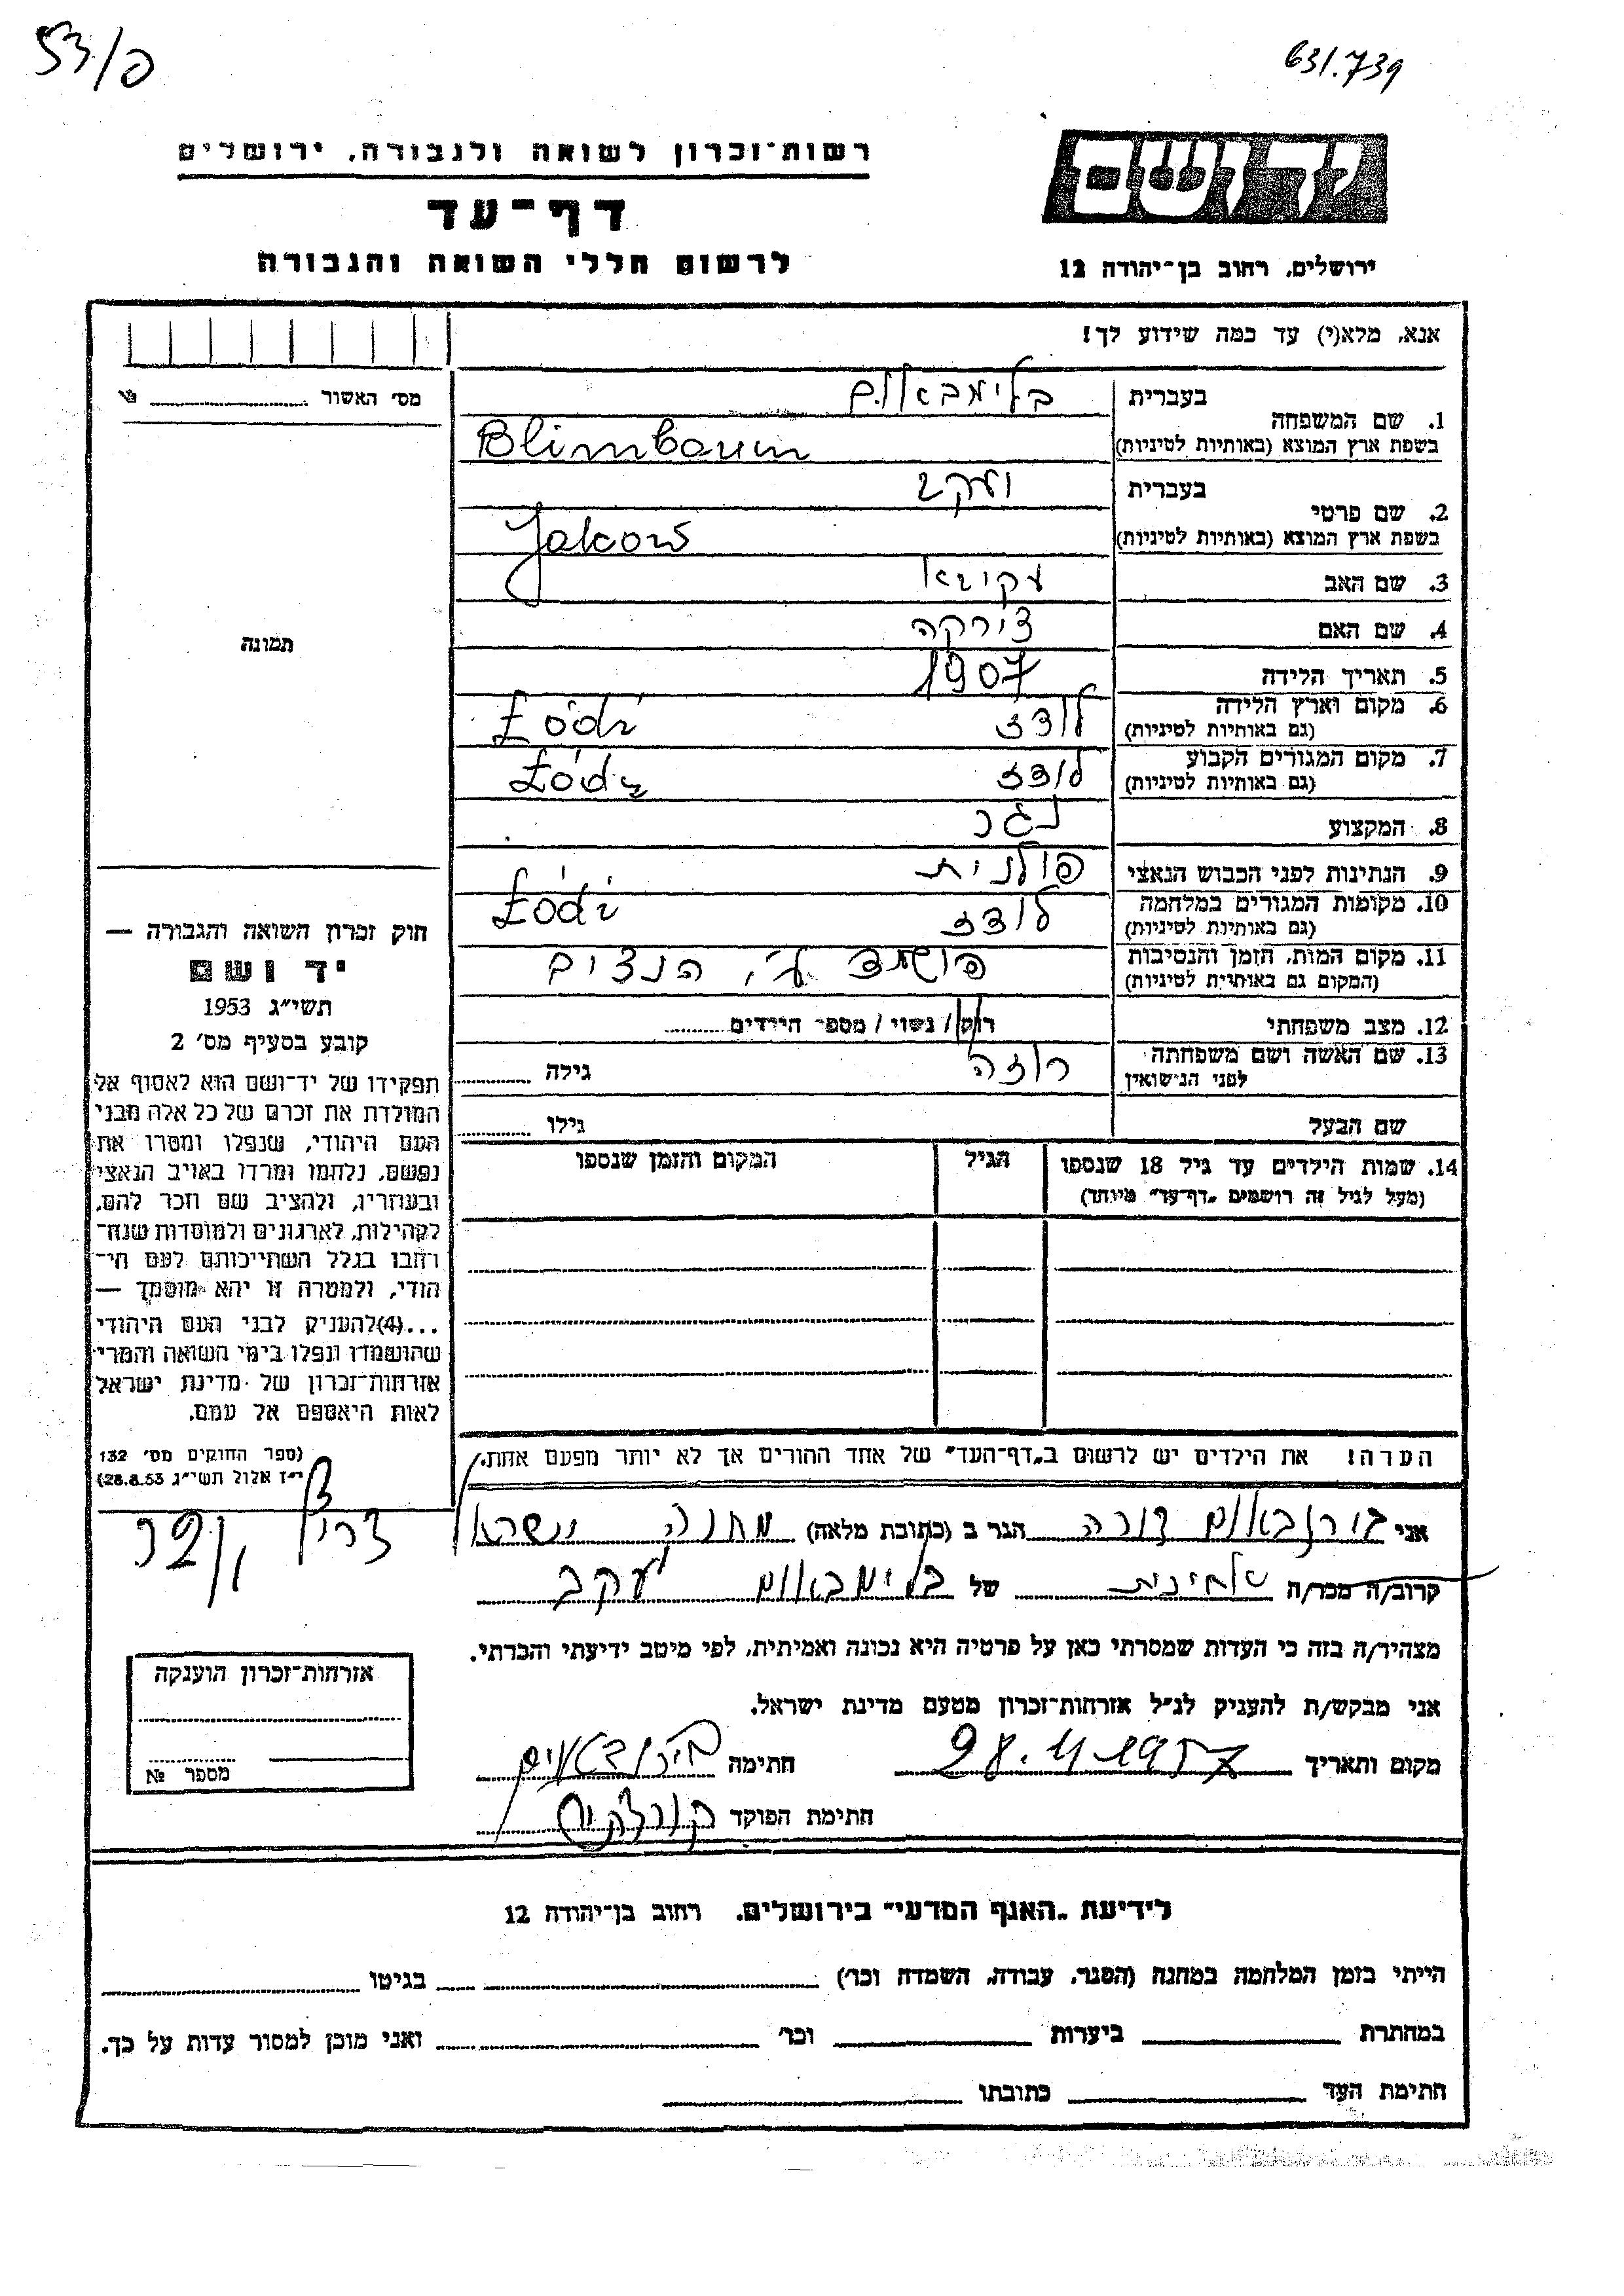 53/פ
631.739
רשות־זכרון לשואה ולגבורה, ירושלים
דף־עד
לרשום חללי השואה והגבורה
יד ושם
ירושלים, רחוב בן־יהודה 12
אנא, מלא(י) עד כמה שידוע לך!
מס׳ האשור
1. שם המשפחה
בעברית
בלימבאום
בשפת ארץ המוצא (באותיות לטיניות)
Blimbaum
2. שם פרטי
בעברית
יעקב
בשפת ארץ המוצא (באותיות לטיניות)
Jakow
3. שם האב
עקיבא
4. שם האם
צירקה
5. תאריך הלידה
1907
6. מקום וארץ הלידה
(גם באותיות לטיניות)
לודז Łódź
7. מקום המגורים הקבוע
(גם באותיות לטיניות)
לודז Łódź
8. המקצוע
נגר
9. הנתינות לפני הכבוש הנאצי
פולנית
10. מקומות המגורים במלחמה
(גם באותיות לטיניות)
לודז Łódź
11. מקום המות, הזמן והנסיבות
(המקום גם באותיות לטיניות)
הושמד ע״י הנצים
12. מצב משפחתי
רוק / נשוי / מספר הילדים
13. שם האשה ושם משפחתה
לפני הנישואין
רוזה
גילה
שם הבעל
גילו
14. שמות הילדים עד גיל 18 שנספו
(מעל לגיל זה רושמים „דף־עד״ מיוחד)
הגיל
המקום והזמן שנספו
הערה! את הילדים יש לרשום ב„דף־העד״ של אחד ההורים אך לא יותר מפעם אחת.
תמונה
חוק זכרון השואה והגבורה —
יד ושם
תשי״ג 1953
קובע בסעיף מס׳ 2
תפקידו של יד־ושם הוא לאסוף אל
המולדת את זכרם של כל אלה מבני
העם היהודי, שנפלו ומסרו את
נפשם, נלחמו ומרדו באויב הנאצי
ובעוזריו, ולהציב שם וזכר להם,
לקהילות, לארגונים ולמוסדות שנח־
רבו בגלל השתייכותם לעם הי־
הודי, ולמטרה זו יהא מוסמך —
...(4) להעניק לבני העם היהודי
שהושמדו ונפלו בימי השואה והמרי
אזרחות־זכרון של מדינת ישראל
לאות היאספם אל עמם.
(ספר החוקים מס׳ 132
י״ז אלול תשי״ג 28.8.53)
אני בירנבאום דורה הגר ב (כתובת מלאה) מחנה ישראל
צריף
קרוב/ה מכר/ה שכינית של בלימבאום יעקב
מצהיר/ה בזה כי העדות שמסרתי כאן על פרטיה היא נכונה ואמיתית, לפי מיטב ידיעתי והכרתי.
אני מבקש/ת להעניק לנ״ל אזרחות־זכרון מטעם מדינת ישראל.
מקום ותאריך 28.4.1957 חתימה בירנבאום
חתימת הפוקד
אזרחות־זכרון הוענקה
מספר №
לידיעת „האגף המדעי״ בירושלים, רחוב בן־יהודה 12
הייתי בזמן המלחמה במחנה (הסגר, עבודה, השמדה וכו׳) בגיטו
במחתרת ביערות וכו׳ ואני מוכן למסור עדות על כך.
חתימת העד כתובתו